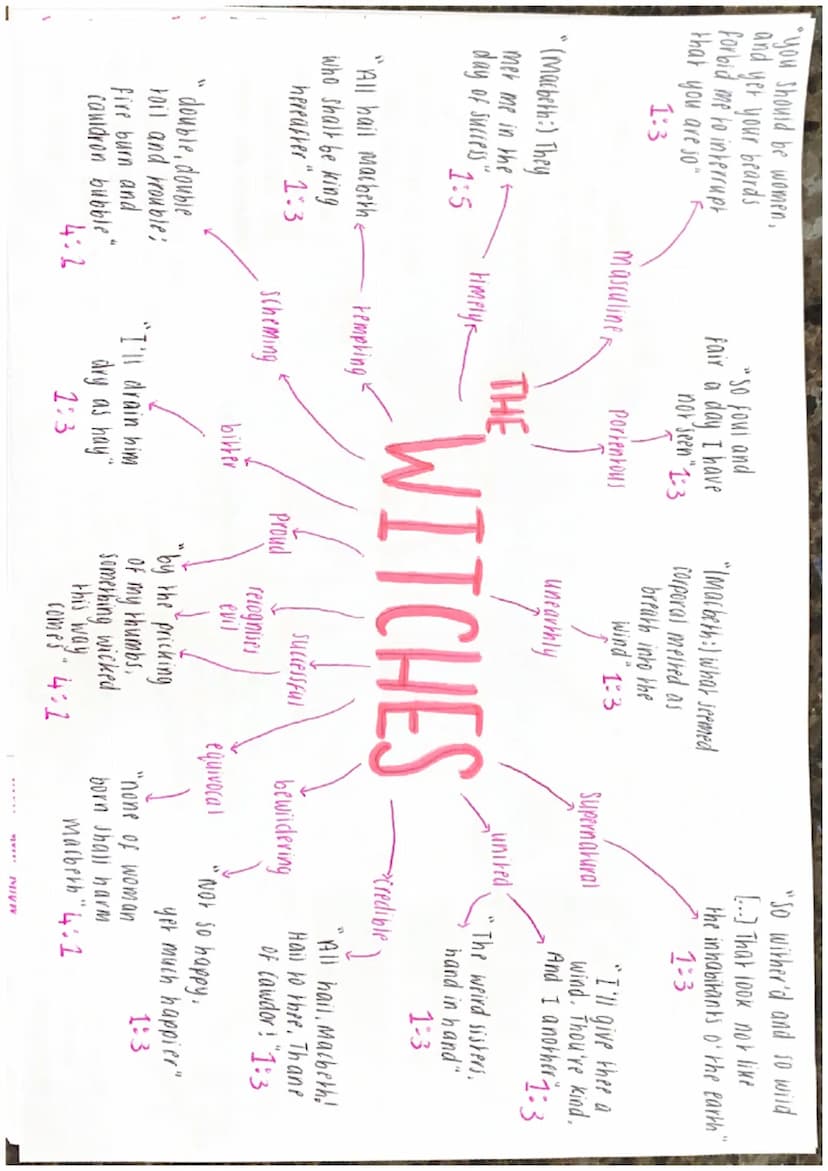 THE
WITCHES
masculine
"you should be women,
and yet your beards
forbid me to interrupt
that you are so"
1:3
portentous
"So foul and
fair a day I have
not seen" 1:3
unearthly
"(Macbeth:) What seemed
corporal melted as
breath into the
wind" 1:3
supernatural
"So wither'd and so wild
[...] That look not like
the inhabitants o' the earth"
1:3
united
"I'll give thee a
wind. Thou're kind.
And I another" 1:3
"The weird sisters,
hand in hand"
1:3
credible
"All hail, Macbeth!
Hail to thee, Thane
of Cawdor!" 1:3
bewildering
"Not so happy,
yet much happier"
1:3
equivocal
"none of woman
born shall harm
Macbeth" 4:1
successful
recognises
evil
proud
"by the pricking
of my thumbs,
something wicked
this way
comes" 4:1
bitter
"I'll drain him
dry as hay"
1:3
scheming
"double, double
toil and trouble;
fire burn and
cauldron bubble"
4:1
tempting
"All hail Macbeth
who shalt be king
hereafter" 1:3
timely
"(Macbeth:) They
met me in the
day of success"
1:5